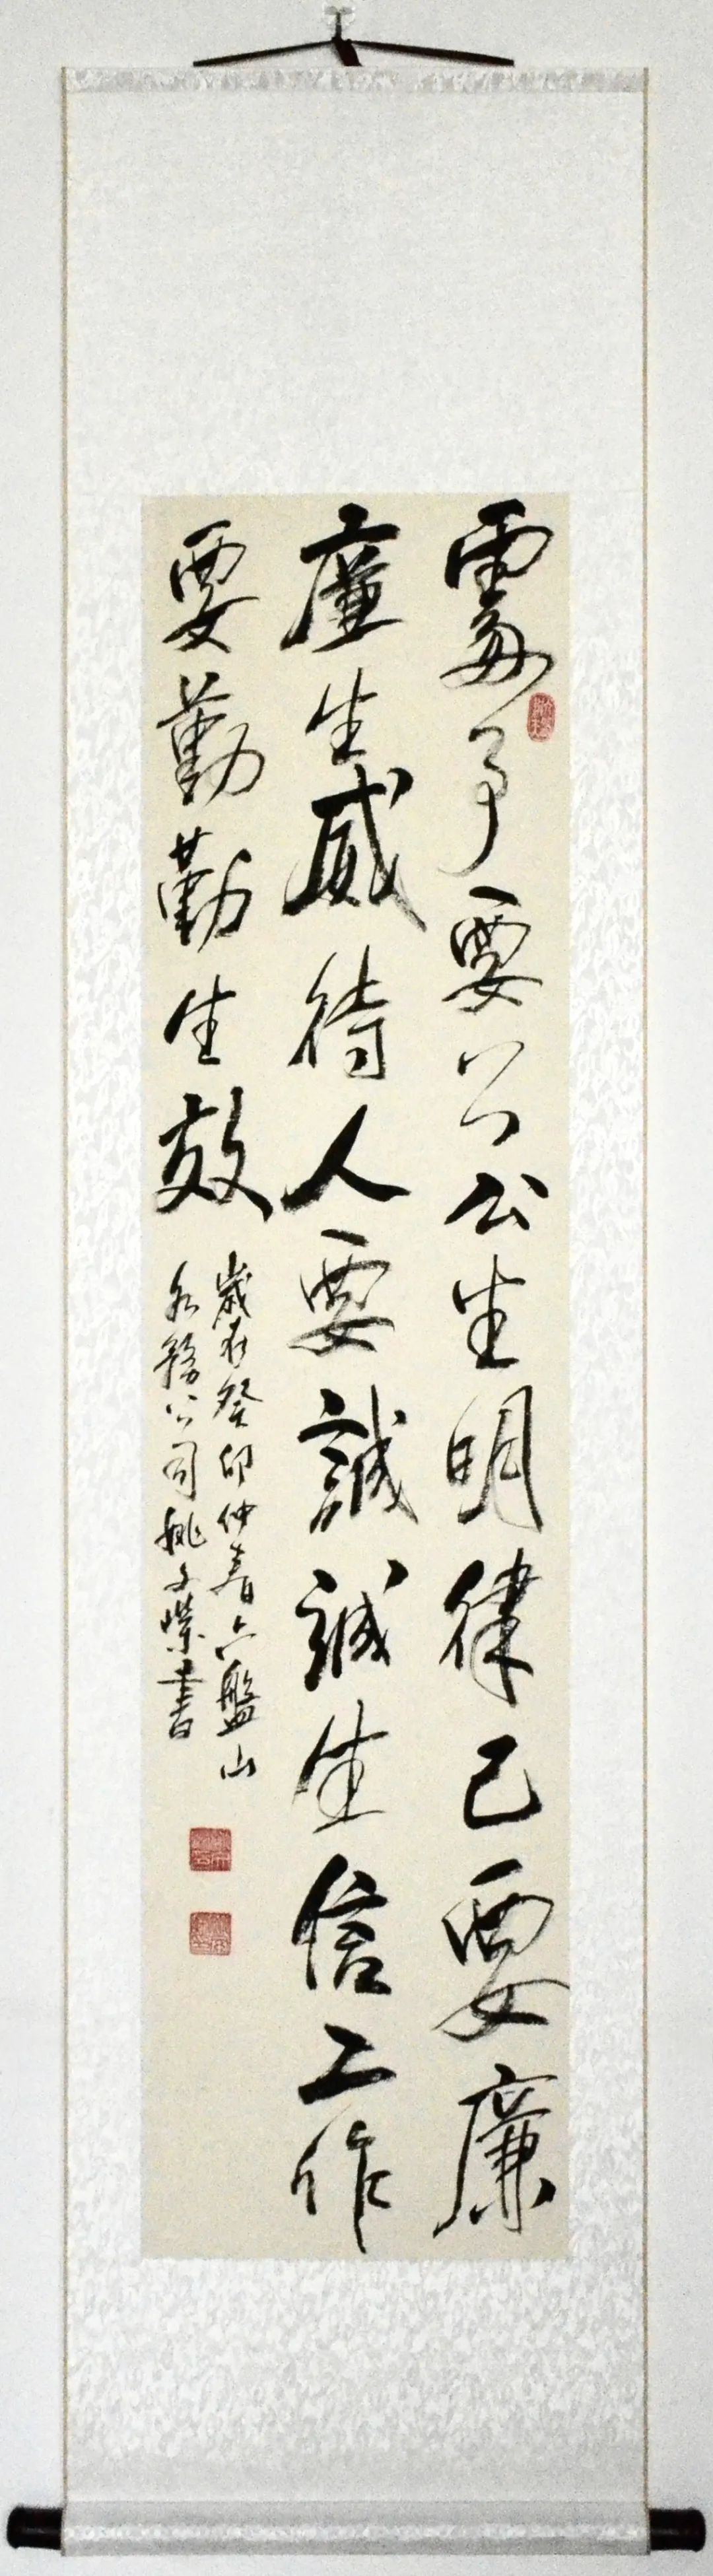 處事要公公生明律己要廉
廉生威待人要誠誠生信工作
要勤勤生效
歲在癸卯仲春六盤山
水務公司姚文 書